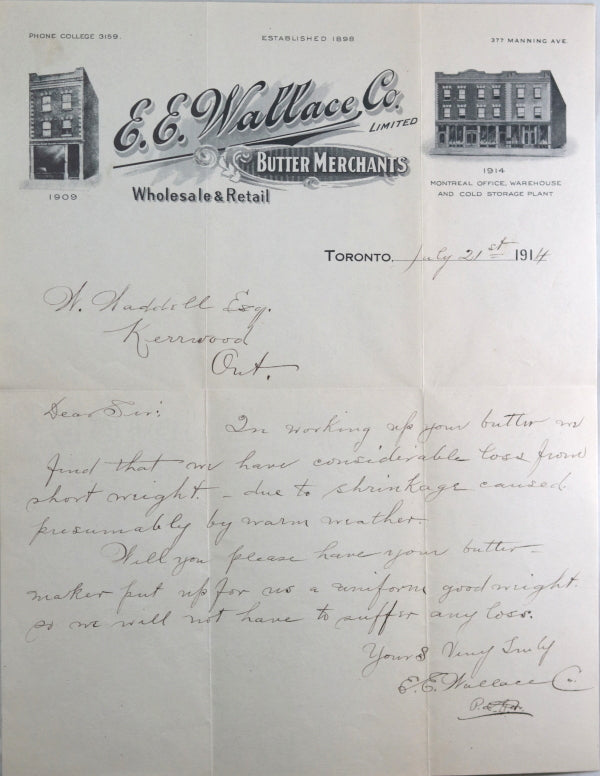 PHONE COLLEGE 3159.
ESTABLISHED 1898
377 MANNING AVE.
E. E. Wallace Co.
LIMITED
BUTTER MERCHANTS
Wholesale & Retail
1909
1914
MONTREAL OFFICE, WAREHOUSE
AND COLD STORAGE PLANT
TORONTO, July 21st 1914
W. Waddell Esq.
Kerrwood
Ont.
Dear Sir:
In working up your butter we
find that we have considerable loss from
short weight - due to shrinkage caused
presumably by warm weather.
Will you please have your butter-
maker put up for us a uniform good weight
so we will not have to suffer any loss.
Yours Very Truly
E. E. Wallace Co.